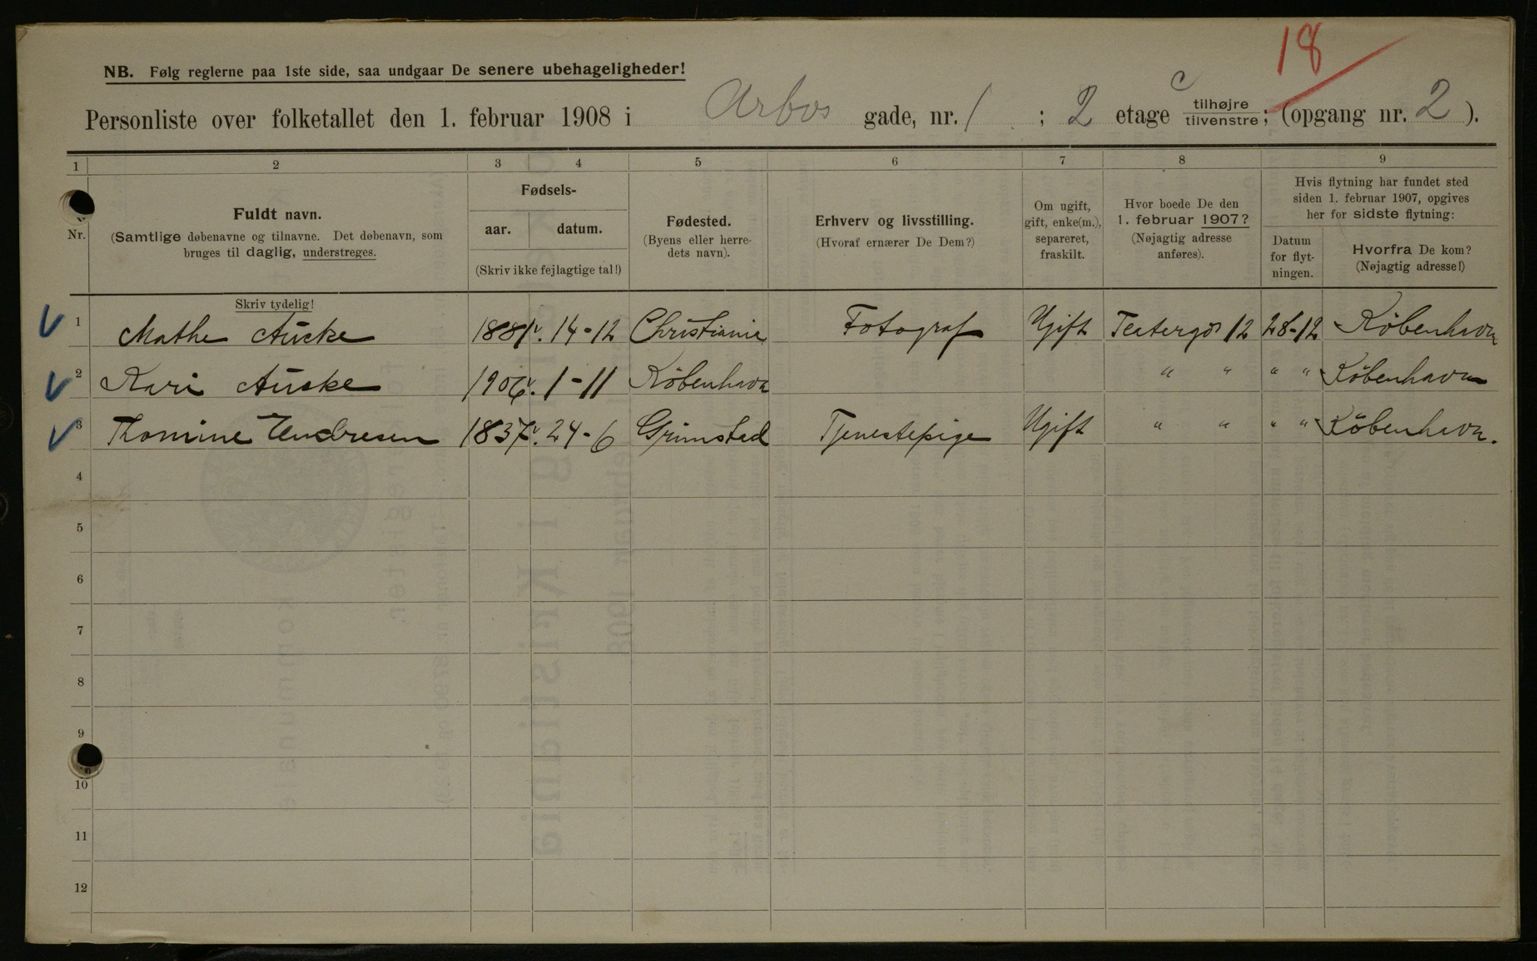 18
NB. Følg reglerne paa 1ste side, saa undgaar De senere ubehageligheder!
Personliste over folketallet den 1. februar 1908 i Arbos gade, nr. 1 ; 2 etage c tilhøjre tilvenstre; (opgang nr. 2 ).
1 2 3 4 5 6 7 8 9
Nr.
Fuldt navn.
(Samtlige døbenavne og tilnavne. Det døbenavn, som
bruges til daglig, understreges.
Skriv tydelig!
Fødsels-
aar. datum.
(Skriv ikke fejlagtige tal!)
Fødested.
(Byens eller herre-
dets navn).
Erhverv og livsstilling.
(Hvoraf ernærer De Dem?)
Om ugift,
gift, enke(m.),
separeret,
fraskilt.
Hvor boede De den
1. februar 1907?
(Nøjagtig adresse
anføres).
Hvis flytning har fundet sted
siden 1. februar 1907, opgives
her for sidste flytning:
Datum
for flyt-
ningen.
Hvorfra De kom?
(Nøjagtig adresse!)
1 Mathe Aucke 1881. 14-12 Christiania Fotograf Ugift Teatergd 12 28-12 København
2 Kari Auske 1906. 1-11 København " " " " København
3 Thomine Endresen 1837. 24-6 Grimstad Tjenestepige Ugift " " " " København.
4
5
6
7
8
9
10
11
12